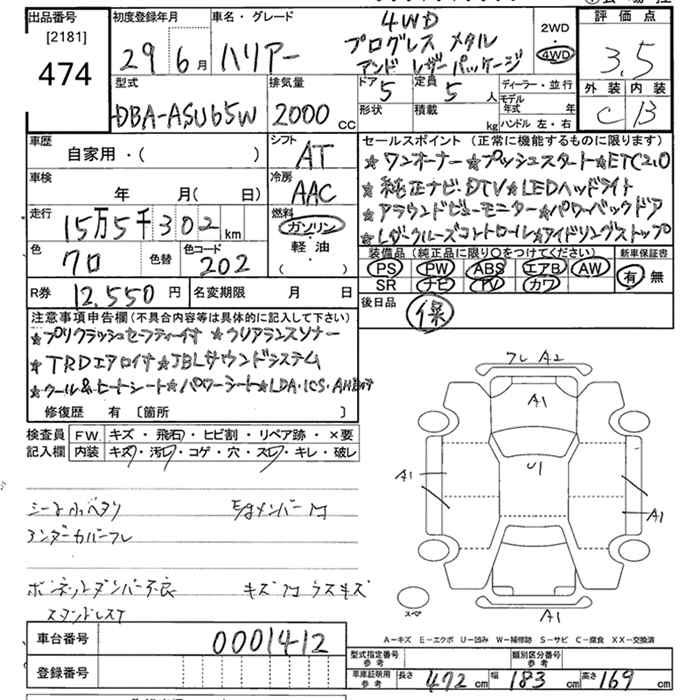 出品番号
[2181]
474
初度登録年月
29年 6月
車名・グレード
ハリアー
4WD
プログレス メタル
アンド レザーパッケージ
2WD
・
4WD
評価点
3.5
外装 内装
C B
型式
DBA-ASU65W
排気量
2000 cc
ドア
5
形状
定員
5 人
積載
kg
ディーラー・並行
モデル年式 年
ハンドル 左・右
車歴
自家用・( )
シフト
AT
車検
年 月( 日)
冷房
AAC
走行
15万5千302 km
燃料
ガソリン
軽・油
・( )
色
クロ
色替
色コード
202
R券
12,550 円
名変期限 月 日
セールスポイント (正常に機能するものに限ります)
★ワンオーナー★プッシュスタート★ETC2.0
★純正ナビ DTV★LEDヘッドライト
★アラウンドビューモニター★パワーバックドア
★レダクルーズコントロール★アイドリングストップ
装備品 (純正品に限り○をつけてください)
新車保証書
PS PW ABS エアB AW
SR ナビ TV カワ
有 無
後日品
保
注意事項申告欄 (不具合内容等は具体的に記入して下さい)
★プリクラッシュセーフティーイナ★クリアランスソナー
★TRDエアロイナ★JBLサウンドシステム
★クール&ヒートシート★パワーシート★LDA・ICS・AHB付
修復歴 有 [箇所 ]
検査員
記入欄
F.W. キズ・飛石・ヒビ割・リペア跡・×要
内装 キズ・汚・コゲ・穴・スレ・キレ・破レ
アンダーカバーフレ
ボンネットダンパー不良
フレ A2
A1
U1
A1
A1
A1
スペア
A-キズ E-エクボ U-凹み W-補修跡 S-サビ C-腐食 XX-交換済
車台番号
0001412
登録番号
型式指定番号
参考
類別区分番号
参考
車庫証明用
参考
長さ 472 cm 幅 183 cm 高さ 169 cm